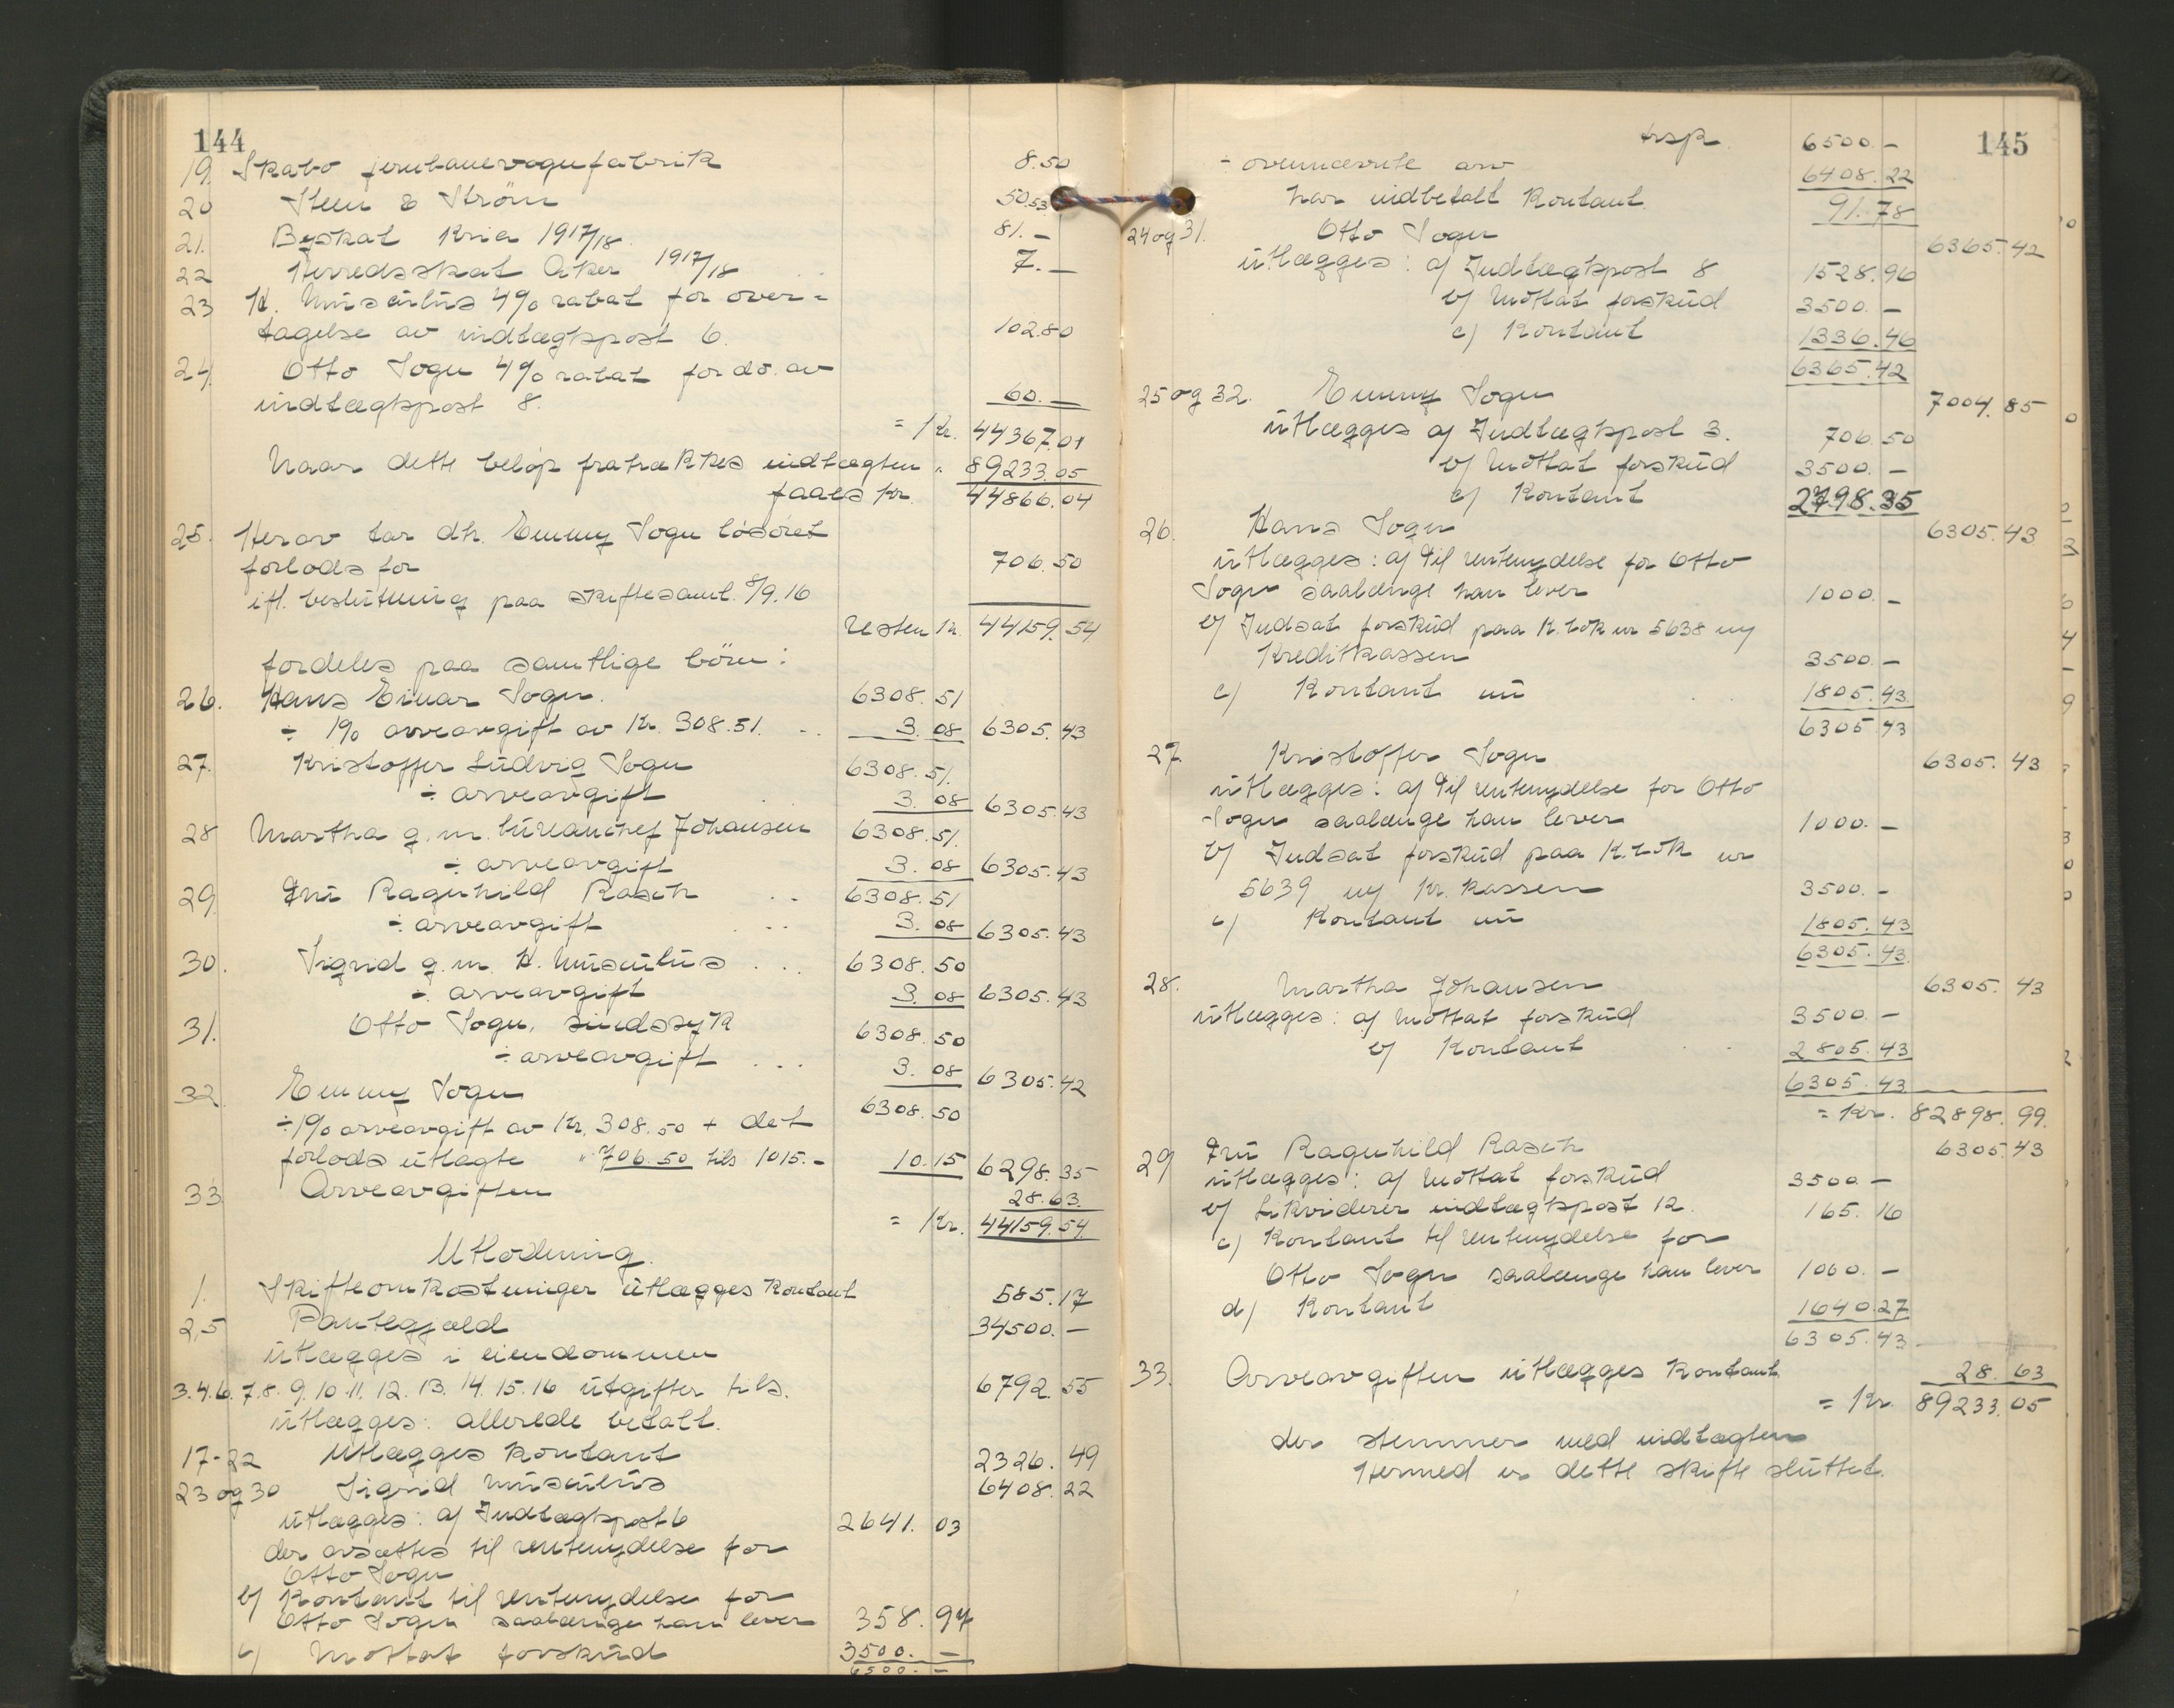 144
19. Skabo jernbanevognfabrik 8.50
20 Steen & Strøm 50.53
21. Byskat Kr.ia 1917/18 81.–
22 Herredsskat Aker 1917/18 .. 7.–
23 H. Musculus 4% rabat for over=
tagelse av indtægtspost 6. 102.80
24 Otto Sogn 4% rabat for do. av
indtægtspost 8. 60.–
= Kr. 44367.01
Naar dette beløp fratrækkes indtægten " 89233.05
faaes kr. 44866.04
25. Herav tar dtr. Emmy Sogn løsøret
forlods for 706.50
ifl. beslutning paa skiftesaml. 8/9.16
resten kr. 44159.54
fordeles paa samtlige börn:
26. Hans Einar Sogn. 6308.51
÷ 1% arveavgift av Kr. 308.51. .. 3.08 6305.43
27. Kristoffer Ludvig Sogn 6308.51.
÷ arveavgift . 3.08 6305.43
28 Martha g.m. bureauchef Johansen 6308.51.
÷ arveavgift 3.08 6305.43
29. Fru Ragnhild Rasch .. 6308.51
÷ arveavgift ... 3.08 6305.43
30. Sigrid g.m. H. Musculus ... 6308.50
÷ arveavgift 3.08 6305.43
31. Otto Sogn, sindssyk 6308.50
÷ arveavgift ... 3.08 6305.42
32 Emmy Sogn 6308.50
÷1% arveavgift av Kr. 308.50 + det
forlods utlagte " 706.50 tils 1015.– 10.15 6298.35
33 Arveavgiften 28.63.
= Kr. 44159.54.
Utlodning.
1. Skifteomkostninger utlægges kontant 585.17
2,5 Pantegjæld 34500.–
utlægges i eiendommen
3.4.6.7.8.9.10.11.12.13.14.15.16 utgifter tils. 6792.55
utlægges: allerede betalt.
17-22 Utlægges kontant 2326.49
23 og 30 Sigrid Musculus 6408.22
utlægges: a) Indtægtspost 6 2641.03
der avsættes til rentenydelse for
Otto Sogn
b) Kontant til rentenydelse for
Otto Sogn saalænge han lever 358.97
c) Mottat forskud 3500.–
6500.–
145
trsp. 6500.–
÷ ovennævnte arv 6408.22
har indbetalt kontant. 91.78
24 og 31. Otto Sogn 6365.42
utlægges: a) Indtægtspost 8 1528.96
b) Mottat forskud 3500.–
c) Kontant 1336.46
6365.42
25 og 32. Emmy Sogn 7004.85
utlægges a) Indtægtspost 3. 706.50
b) Mottat forskud 3500.–
c) Kontant 2798.35
26. Hans Sogn 6305.43
utlægges: a) til rentenydelse for Otto
Sogn saalænge han lever 1000.–
b) Indsat forskud paa K.bok nr 5638 ny
Kreditkassen 3500.–
c) Kontant nu .. 1805.43
6305.43
27. Kristoffer Sogn 6305.43
utlægges: a) til rentenydelse for Otto
Sogn saalænge han lever 1000.–
b) Indsat forskud paa K.bok nr
5639 ny Kr. kassen 3500.–
c) Kontant nu 1805.43
6305.43.
28. Martha Johansen 6305.43
utlægges: a) Mottat forskud 3500.–
b) Kontant .. 2805.43
6305.43
= Kr. 82898.99.
29 Fru Ragnhild Rasch 6305.43
utlægges: a) Mottat forskud 3500.–
b) Likviderer indtægtspost 12. 165.16
c) Kontant til rentenydelse for
Otto Sogn saalænge han lever 1000.–
d) Kontant 1640.27
6305.43
33. Arveavgiften utlægges kontant 28.63
= Kr. 89233.05
der stemmer med indtægten
Hermed er dette skifte sluttet.